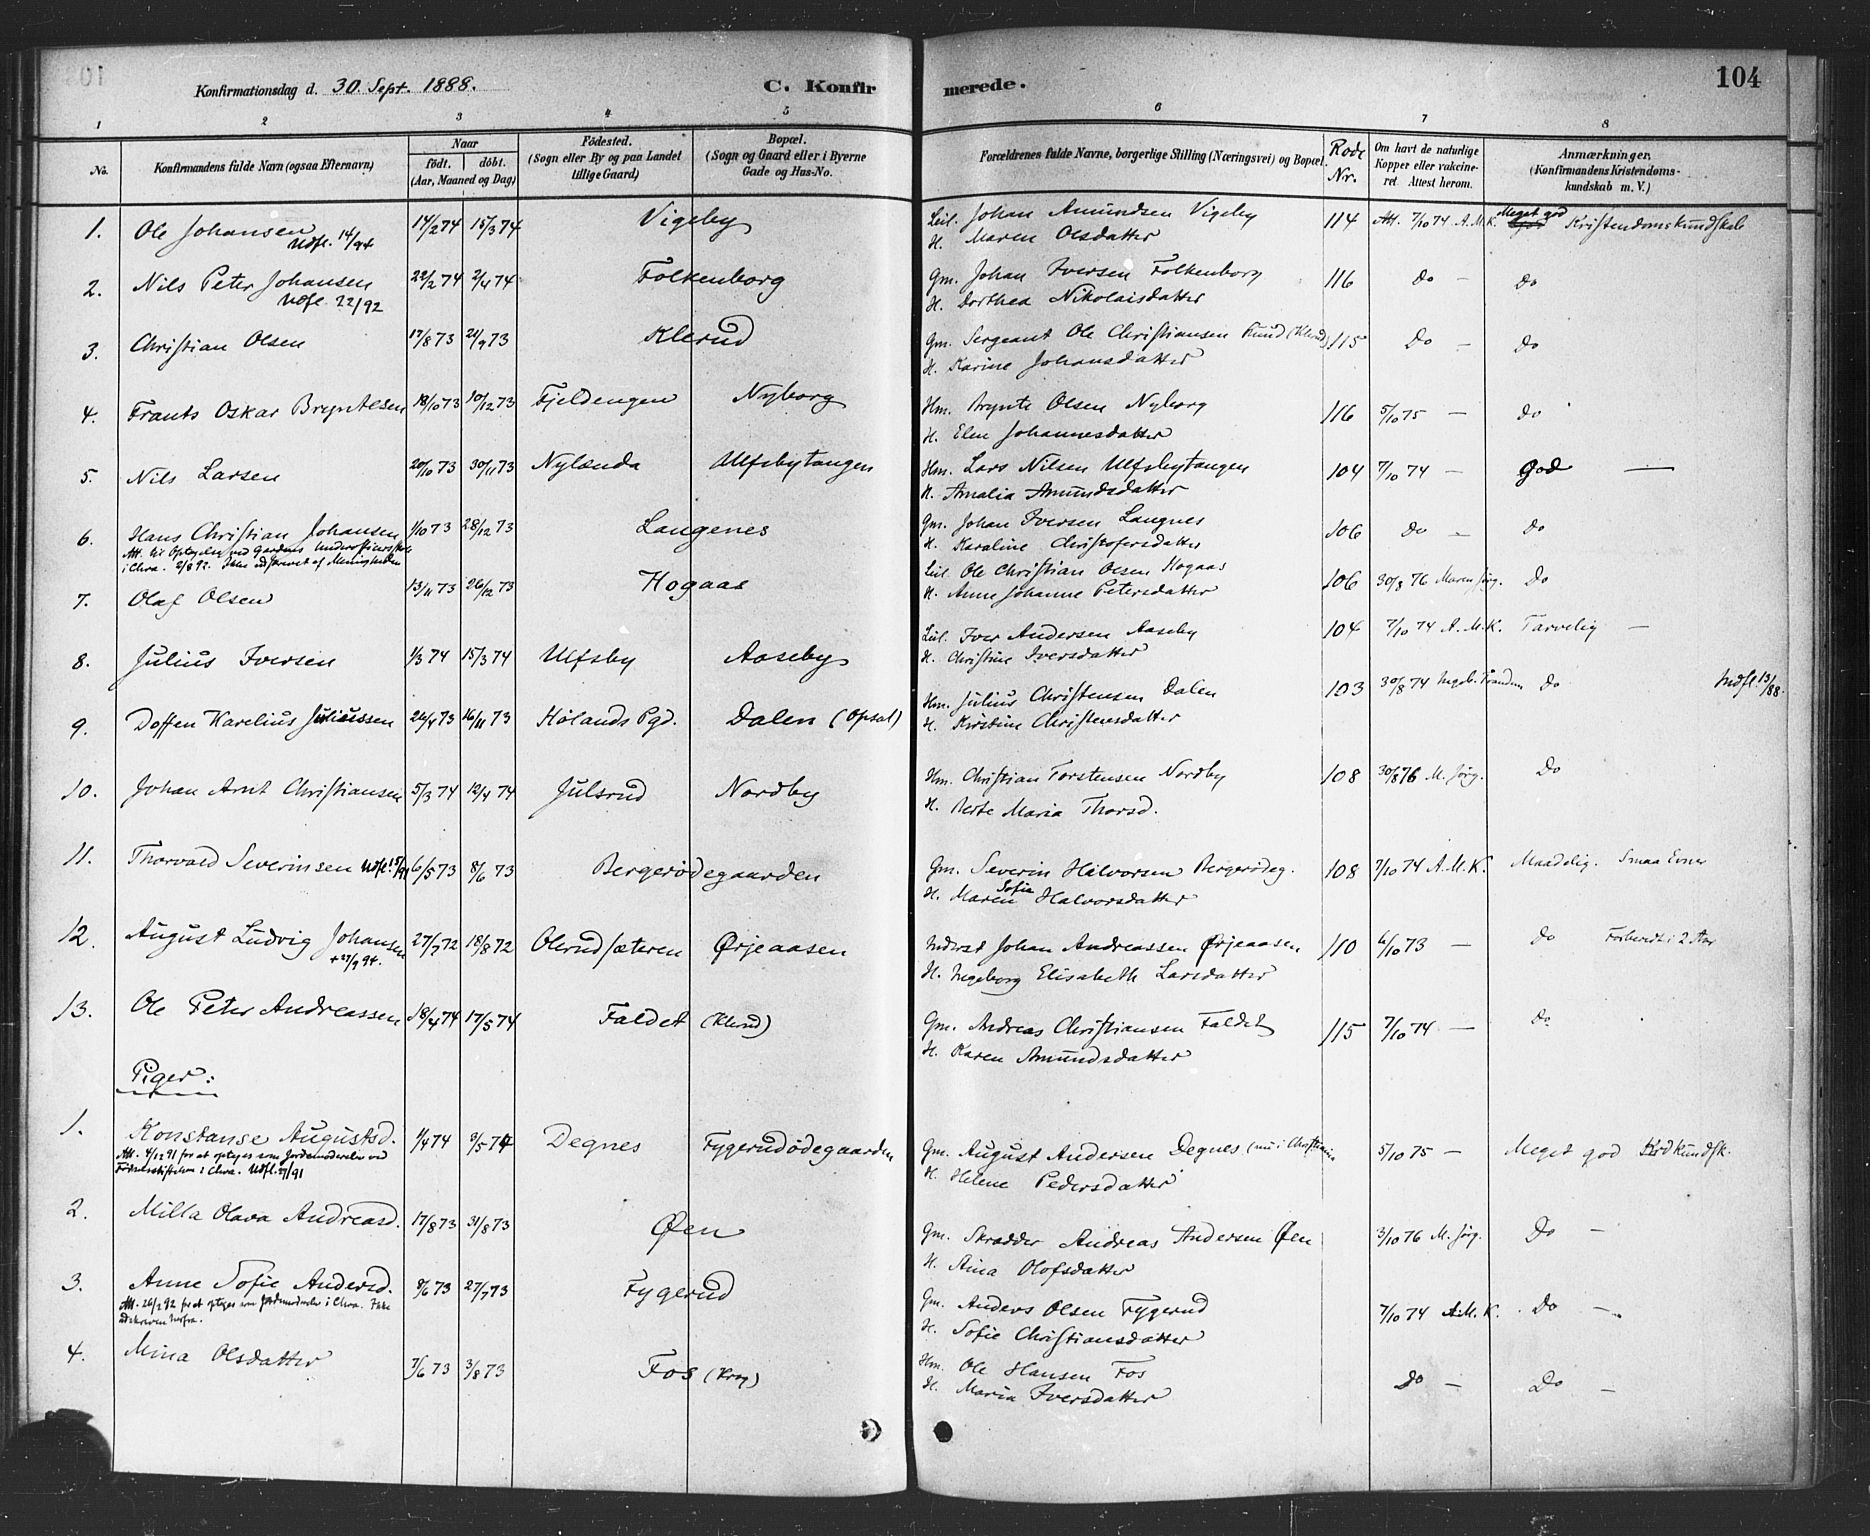 Konfirmationsdag d. 30. Sept. 1888.
C. Konfir
merede.
104
1 2 3 4 5 6 7 8
No.
Konfirmandens fulde Navn (ogsaa Efternavn)
Naar
födt. döbt.
(Aar, Maaned og Dag)
Födested.
(Sogn eller By og paa Landet
tillige Gaard)
Bopæl.
(Sogn og Gaard eller i Byerne
Gade og Hus-No.
Forældrenes fulde Navne, borgerlige Stilling (Næringsvei) og Bopæl.
Rode
Nr.
Om havt de naturlige
Kopper eller vakcine-
ret Attest herom.
Anmærkninger,
(Konfirmandens Kristendoms-
kundskab m. V.)
1. Ole Johansen 14/2 74 15/3 74 Vigeby Leil. Johan Amundsen Vigeby 114 Att. 7/10 74 A. M. K. Meget god Kristendomskundskab
Udfl. 14/94 H. Maren Olsdatter
2. Nils Peter Johansen 22/2 74 2/4 74 Folkenborg Gm. Johan Iversen Folkenborg 116 Do — Do
Udfl. 22/92 H. Dorthea Nikolaisdatter
3. Christian Olsen 17/8 73 21/9 73 Klerud Gm. Sergeant Ole Christiansen (Klerud) 115 Do — Do
H. Karine Johansdatter
4. Frants Oskar Bryntesen 18/10 73 10/12 73 Fjeldengen Nyborg Hm. Brynte Olsen Nyborg 116 5/10 75 — Do
H. Elen Johannesdatter
5. Nils Larsen 20/10 73 30/11 73 Nylænda Ulfsbytangen Hm. Lars Nilsen Ulfsbytangen 104 7/10 74 — God —
H. Amalia Amundsdatter
6. Hans Christian Johansen 1/10 73 28/12 73 Langenes Gm. Johan Iversen Langnes 106 Do — Do
Att. til Optagelse ved Gardens
i Chra. 2/8 92. Ikke udskrevet af Menigheden H. Karaline Christofersdatter
7. Olaf Olsen 13/11 73 26/12 73 Hogaas Leil. Ole Christian Olsen Hogaas 106 30/8 76 Maren Jørg. Do
H. Anne Johanne Petersdatter
8. Julius Iversen 1/3 74 15/3 74 Ulfsby Aaseby Leil. Iver Andersen Aaseby 104 7/10 74 A. M. K. Tarvelig —
H. Christine Iversdatter
9. Doffen Karelius Juliussen 26/4 73 16/11 73 Hølands Pgd. Dalen (Opsal) Hm. Julius Christensen Dalen 103 30/8 74 Ingeb. Do Indfl. 13/88.
H. Kirstine Christensdatter
10. Johan Arnt Christiansen 5/3 74 12/4 74 Julsrud Nordby Hm. Christian Torstensen Nordby 108 30/8 76 M. Jörg. Do
H. Berte Maria Thorsd.
11. Thorvald Severinsen Udfl. 15/91 6/5 73 8/6 73 Bergerødegaarden Gm. Severin Halvorsen Bergerødeg. 108 7/10 74 A. M. K. Maadelig. Smaa Evner
H. Maren Sofie Halvorsdatter
12. August Ludvig Johansen 27/7 72 18/8 72 Olerudsæteren Ørjeaasen Inderst Johan Andreassen Ørjeaasen 110 6/10 73 — Do Forberedt i 2 Aar
+ 27/9 94. H. Ingeborg Elisabeth Larsdatter
13. Ole Peter Andreassen 18/4 74 17/5 74 Faldet (Klerud) Gm. Andreas Christiansen Faldet 115 7/10 74 — Do
H. Karen Amundsdatter
Piger:
1. Konstanse Augustsd. 1/4 74 3/5 74 Degnes Fygerudødegaarden Gm. August Andersen Degnes (nu i Christiania 5/10 75 — Meget god Krdkundsk.
Att. 4/12 91 for at optages som Jordemoderelev ved
Födselsstiftelsen i Chra. Udfl. H. Helene Pedersdatter
2. Milla Olava Andreasd. 17/8 73 31/8 73 Øen Gm. Skrædder Andreas Andersen Øen 3/10 76 M. Jörg. Do —
H. Aina Olofsdatter
3. Anne Sofie Andersd. 8/6 73 27/7 73 Fygerud Gm. Anders Olsen Fygerud 7/10 74 A. M. K. Do —
Att. 26/2 92 for at optages som Jordemoderelev i Chra. Ikke
udskreven herfra. H. Sofie Christiansdatter
4. Mina Olsdatter 7/6 73 3/8 73 Fos (Krog) Hm. Ole Hansen Fos Do — Do —
H. Maria Iversdatter